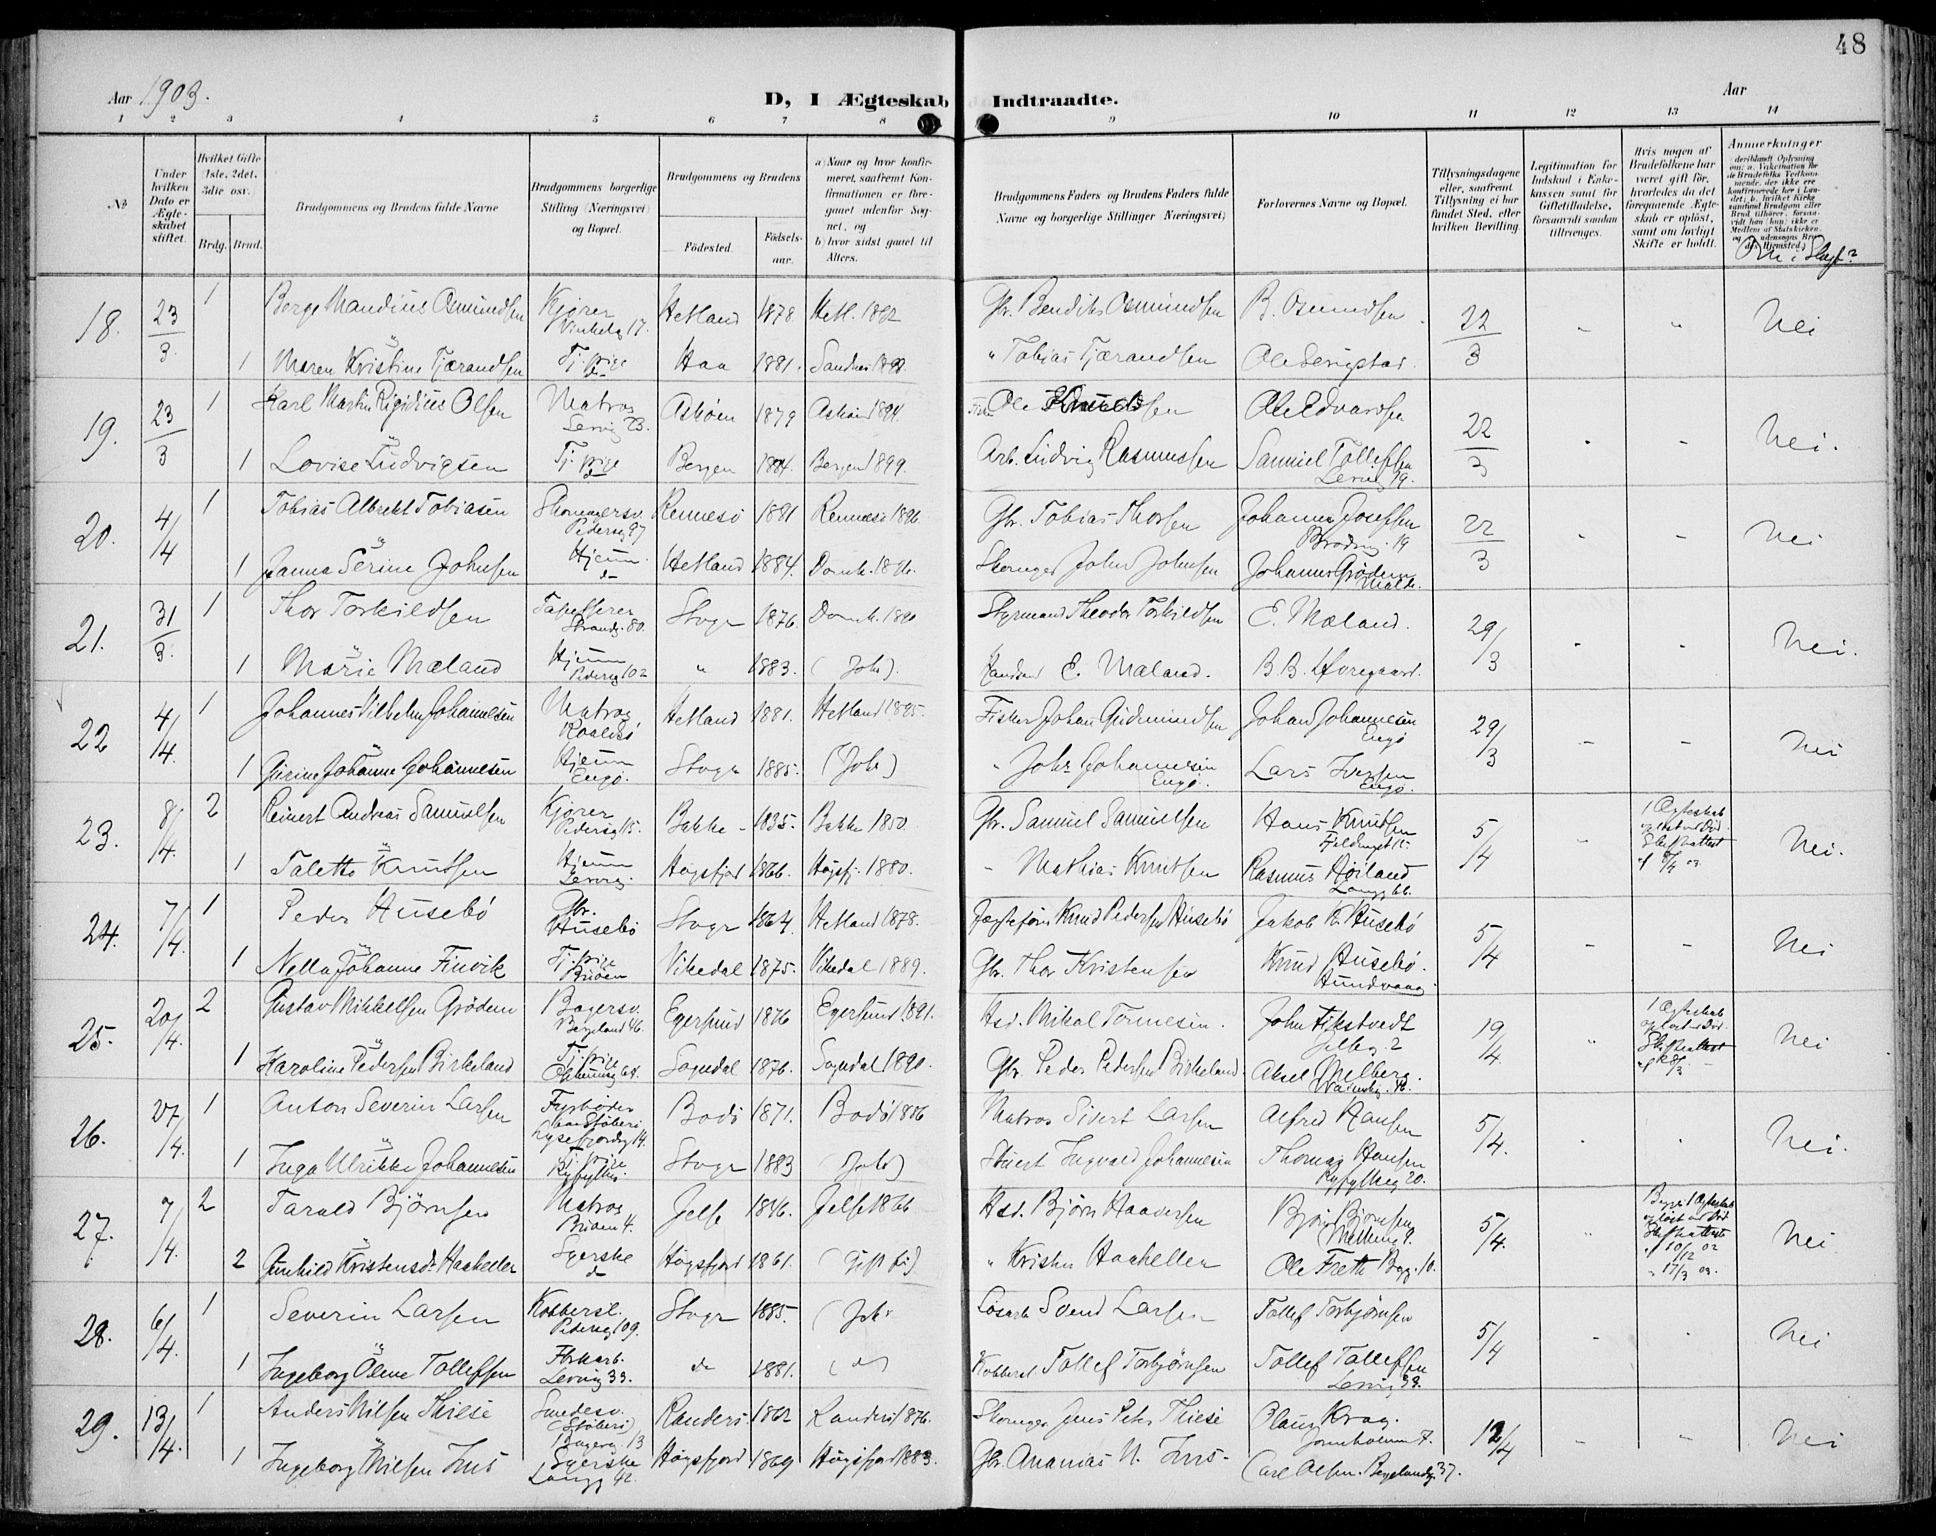 48
Aar 1903.
D, I Ægteskab Indtraadte.
Aar
1 2 3 4 5 6 7 8 9 10 11 12 13 14
No
Under hvilken Dato er Ægteskabet stiftet.
Hvilket Gifte 1ste, 2det, 3die osv.
Brdg. Brud.
Brudgommens og Brudens fulde Navne
Brudgommens borgerlige Stilling (Næringsvei) og Bopæl.
Brudgommens og Brudens
Fødested. Fødselsaar.
a) Naar og hvor konfirmeret, saafremt Konfirmationen er foregaaet udenfor Sognet, og
b) hvor sidst gaaet til Alters.
Brudgommens Faders og Brudens Faders fulde Navne og borgerlige Stillinger Næringsvei)
Forlovernes Navne og Bopæl.
Tillysningsdagene eller, saafremt Tillysning ei har fundet Sted, efter hvilken Bevilling.
Legitimation for Indskud i Enkekassen samt for Giftetilladelse, forsaavidt saadan tiltrænges.
Hvis nogen af Brudefolkene har været gift før, hvorledes da det foregaaende Ægteskab er opløst, samt om lovligt Skifte er holdt.
Anmerkninger
Om i Slægt?
18. 23/3 1 Berge Mandius Osmundsen Kjører Hetland 1878 Hetl. 1892 Gbr. Bendiks Osmundsen B. Osmundsen 22/3 " " Nei
Vinkelg 17.
1 Maren Kristine Tjærandsen Tj.pige Haa 1881. Sandnes " Tobias Tjærandsen
19. 23/3 1 Karl Martin Rigidius Olsen Matros Askøen 1879 Askøen 1894. Ole Ole Edvardsen 22/3 Nei.
Lervig 23.
1 Lovise Ludvigsen Tj.pige Bergen Bergen 1899 Arb. Ludvig Rasmussen Samuel Tollefsen
Lervig 19.
20. 4/4 1 Tobias Albrekt Tobiasen Skomagersv. Rennesø 1881 Rennesø 1896. Gbr. Tobias Thorsen Johannes Josefsen 22/3 Nei
Pedersg 97
1 Janna Serine Johnsen Hjem. Hetland 1884. Domk. Skomager John Johnsen Johannes Grødem
21. 31/3. 1 Thor Torkildsen Tapetserer Stvgr 1876. Domk. 1890 Styrmand Theodor Torkildsen E. Mæland. 29/3 Nei.
Strandg. 80.
1 Marie Mæland Hjem " 1883. (Joh). E. Mæland.
Pedersg 102
22 4/4. 1 Johannes Vilhelm Johannesen Matros Hetland 1881. Hetland 1895. Fisker Johan Gudmundsen Johan Johannesen 29/3 Nei
Engø
1 Gurine Johanne Johannesen Hjem Stvgr 1885. (Joh) " Johs Johannesen Lars Iversen
Engø. Engø. Engø.
23. 8/4. 2 Reinert Andreas Samuelsen Kjører Bakke 1835. Bakke 1850. Gbr. Samuel Samuelsen Hans Knudsen 5/4 1 Ægteskab opløst ved Død. Skifteattest af 8/4 03 Nei.
Pedersg 15.
1 Taletta Knutsen Hjem Høgsfjord 1866. Høgsfj. 1880. " Mathias Knutsen Rasmus Høiland
Lervig. Langg 66.
24. 7/4. 1 Peder Husebø Gbr. Stvgr 1864. Hetland 1878. Knud Pedersen Husebø Jakob K. Husebø 5/4 Nei
Husebø
1 Nella Johanne Finvik Tj.pige Vikedal 1875. Vikedal 1889. Gbr. Thor Kristensen Knud Husebø.
Buøen Hundvaag
25. 20/4. 2 Gustav Mikkelsen Grødem Bagersv. Egersund 1876 Egersund 1891. Hsd. Mikal Tønnesen. John 19/4 " 1 Ægteskab opløst ved Død Skifteattest Nei
Bergeland 46.
1 Karoline Pedersen Birkeland Tj.pige Sogndal 1876. Sogndal 1890. Gbr. Peder Pedersen Birkeland. Aksel Melberg.
26. 27/4. 1 Anton Severin Larsen Fyrbøder Bodø 1871. Bodø 1886 Matros Sivert Larsen Alfred Hansen 5/4. Nei.
Lysefjordsg 14.
1 Inga Ulrikke Johannesen Tj.pige Stvgr 1883 (Joh) Stuert Ingvald Johannesen Thomas Hansen
Ryfylkeg 20.
27. 7/4. 2 Tarald Bjørnsen Matros Jelse 1846. Jelse 1866 Hsd. Bjørn Haaversen Bjørn Bjørnsen 5/4. " Begge 1 Ægteskab opløst ved Død Skifteattest af 10/12 02 " 17/3 03. Nei
1 2 Gunhild Kristensdr Haahellen Syerske Høgsfjord 1861. (Gift i) " Kristen Haahellen Ole Fræth Bagg. 10.
28. 6/4. 1 Severin Larsen Kobbersl. Stvgr 1885. (Joh. Løsarb Svend Larsen Tollef Torbjørnsen 5/4 Nei
Pedersg 109.
1 Ingeborg Olene Tollefsen Fbrkarb. do 1881. (do) Kobbersl Tollef Torbjørnsen Tollef Tollefsen
Lervig 33. Lervig 38.
29. 13/4. 1 Anders Nilsen Thiese Smedesv. Randers 1862 Randers 1876. Skomager Jens Peter Thiese Olaus Krag. 12/4 Nei
(Støberi)
1 Ingeborg Nilsen Ims Syerske Høgsfjord 1869 Høgsfjord 1883. Gbr. Ananias N. Ims. Carl Olsen. Bergelandg. 37.
Langg 42.